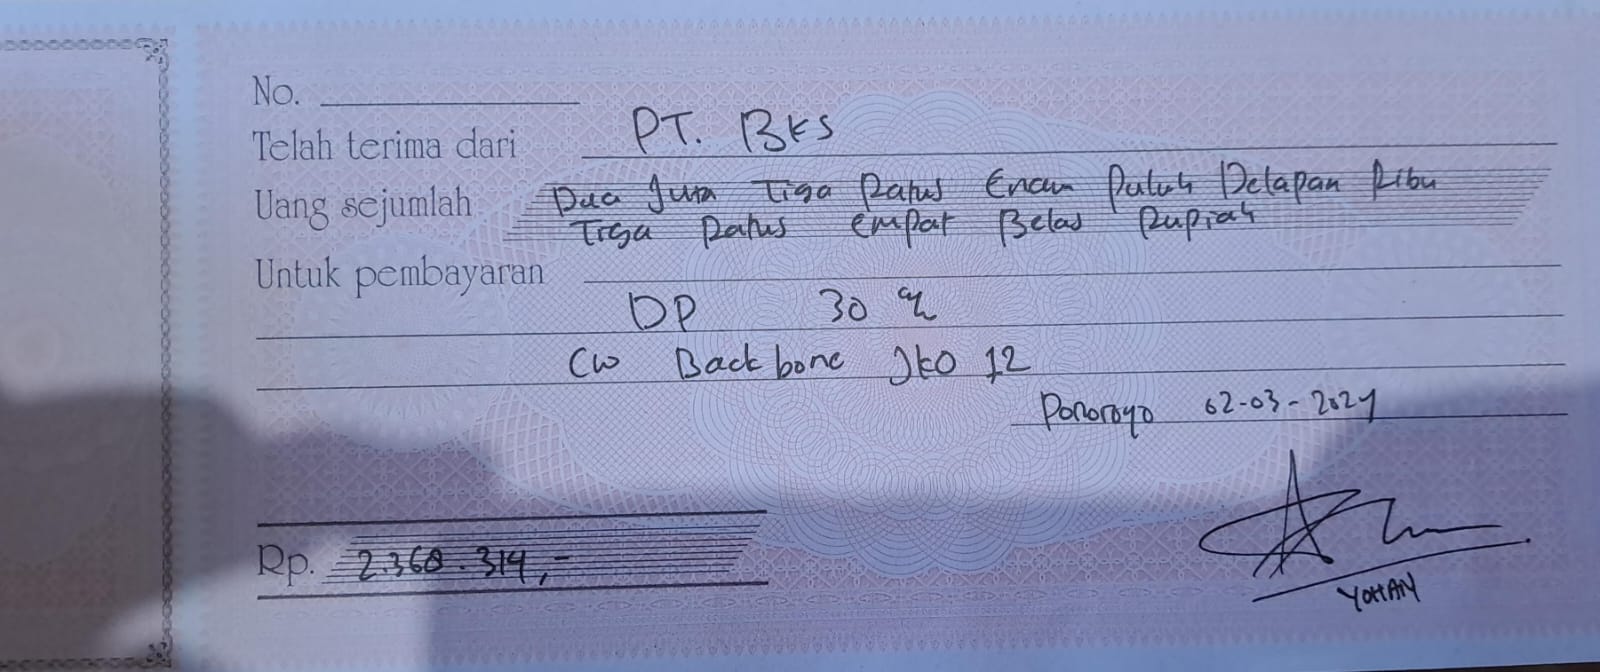 No.
Telah terima dari PT. BKS
Uang sejumlah Dua Juta Tiga Ratus Enam Puluh Delapan Ribu
Tiga Ratus Empat Belas Rupiah
Untuk pembayaran
DP 30 %
CW Backbone Jko 12
Ponorogo 02-03-2024
Rp. 2.368.314,-
YOHAN